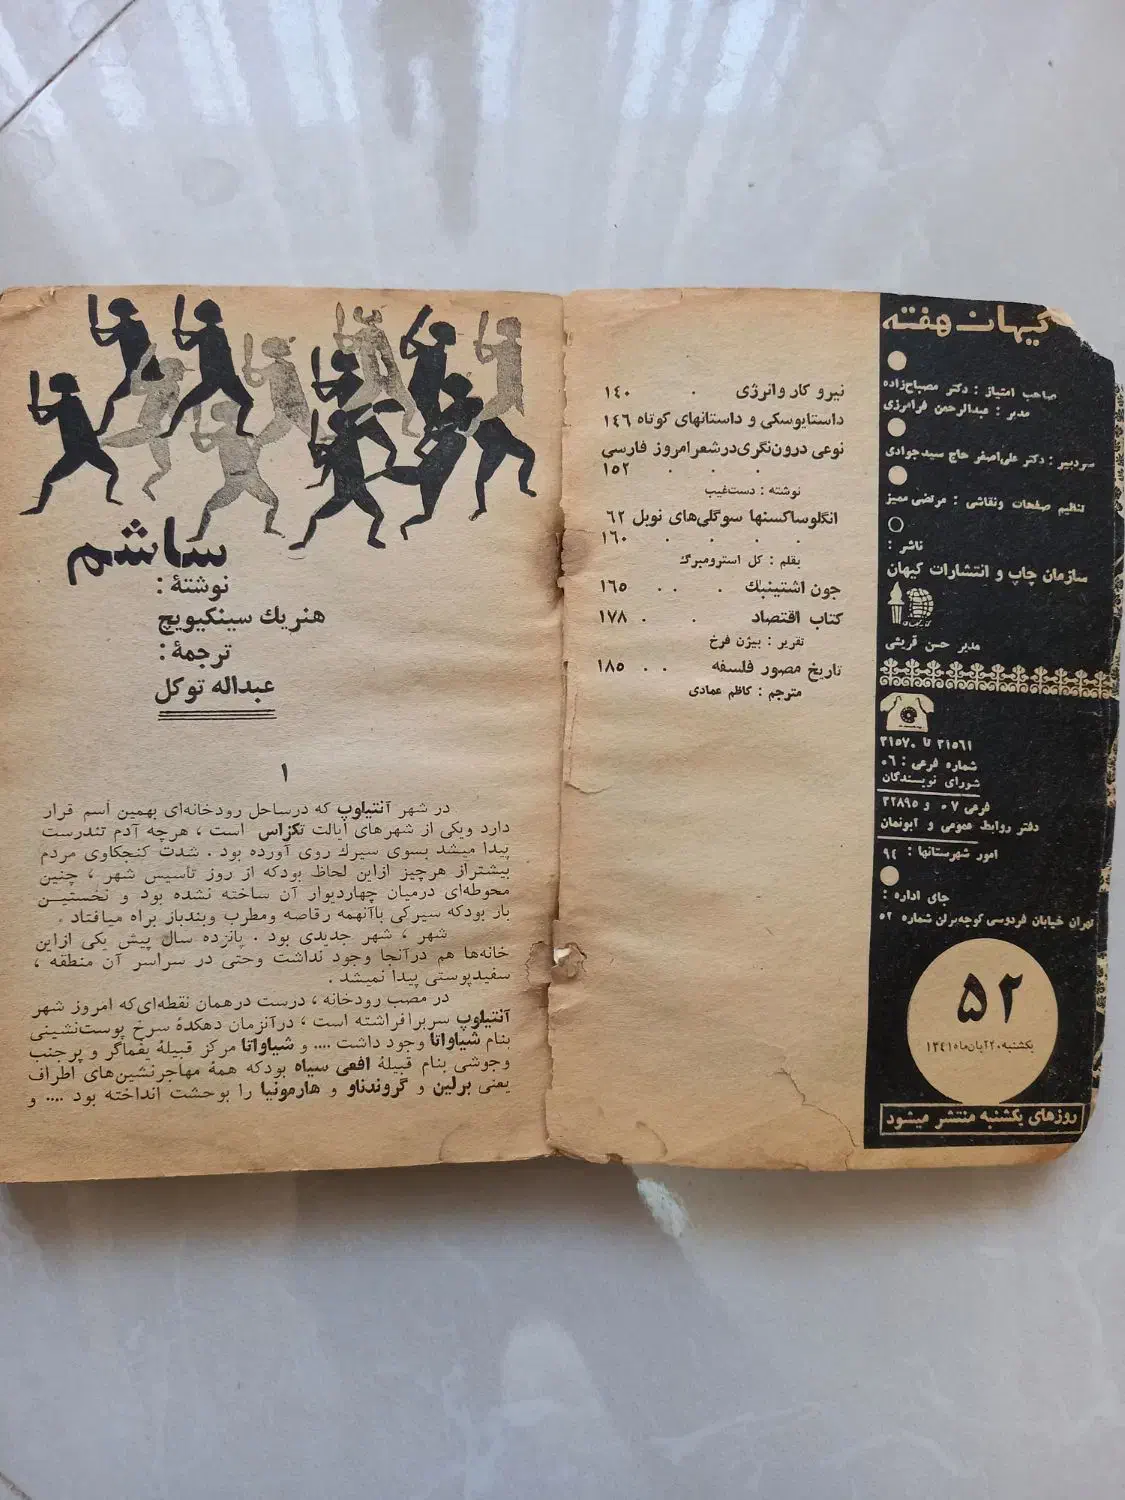 کیهان هفته
صاحب امتیاز : دکتر مصباح‌زاده
مدیر : عبدالرحمن فرامرزی
سردبیر : دکتر علی‌اصغر حاج سیدجوادی
تنظیم صفحات ونقاشی : مرتضی ممیز
ناشر :
سازمان چاپ و انتشارات کیهان
مدیر حسن قریشی
۳۱۵۶۱ تا ۳۱۵۷۰
شماره فرعی : ۰۶
شورای نویسندگان
فرعی ۰۷ و ۳۲۸۹۵
دفتر روابط عمومی و آبونمان
امور شهرستانها : ۹۴
جای اداره :
تهران خیابان فردوسی کوچه برلن شماره ۵۲
۵۲
یکشنبه ۲۰ آبان ماه ۱۳۴۱
روزهای یکشنبه منتشر میشود
نیرو کار وانرژی . ۱۴۰
داستایوسکی و داستانهای کوتاه ۱۴۶
نوعی درون‌نگری‌درشعرامروز فارسی
. . . ۱۵۲
نوشته : دست‌غیب
انگلوساکسنها سوگلی‌های نوبل ۶۲
. . . . ۱۶۰
بقلم : کل استرومبرگ
جون اشتینبک . . . ۱۶۵
کتاب اقتصاد . . ۱۷۸
تقریر : بیژن فرخ
تاریخ مصور فلسفه . . ۱۸۵
مترجم : کاظم عمادی
ساشم
نوشتهٔ :
هنریک سینکیویچ
ترجمهٔ :
عبداله توکل
۱
در شهر آنتیلوپ که درساحل رودخانه‌ای بهمین اسم قرار
دارد ویکی از شهرهای ایالت تکزاس است ، هرچه آدم تندرست
پیدا میشد بسوی سیرک روی آورده بود . شدت کنجکاوی مردم
بیشتراز هرچیز ازاین لحاظ بودکه از روز تأسیس شهر ، چنین
محوطه‌ای درمیان چهاردیوار آن ساخته نشده بود و نخستین
بار بودکه سیرکی باآنهمه رقاصه ومطرب وبندباز براه میافتاد .
شهر ، شهر جدیدی بود . پانزده سال پیش یکی ازاین
خانه‌ها هم درآنجا وجود نداشت وحتی در سراسر آن منطقه ،
سفیدپوستی پیدا نمیشد .
در مصب رودخانه ، درست درهمان نقطه‌ای‌که امروز شهر
آنتیلوپ سربرافراشته است ، درآنزمان دهکدهٔ سرخ پوست‌نشینی
بنام شیاواتا وجود داشت .... و شیاواتا مرکز قبیلهٔ یغماگر و پرجنب
وجوشی بنام قبیلهٔ افعی سیاه بودکه همهٔ مهاجرنشین‌های اطراف
یعنی برلین و گروندناو و هارمونیا را بوحشت انداخته بود .... و